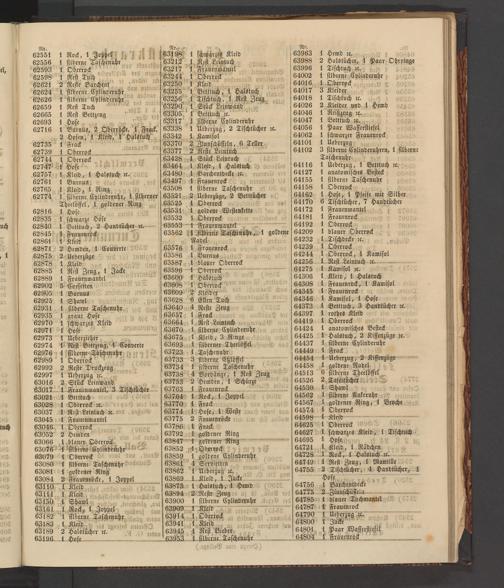 Nr.
62551 1 Rock, 1 Joppel
62556 1 silberne Taschenuhr
62593 1 Oberrock
62598 1 Rest Tuch
62621 2 Reste Barchent
62624 1 silberne Cylinderuhr
62626 1 silberne Cylinderuhr
62659 1 Rest Tuch
62665 1 Rest Bettzeug
62693 1 Hose
62716 1 Burnus, 2 Oberröcke, 1 Frack,
2 Hosen, 1 Kleid, 1 Halstuch
62735 1 Frack
62739 1 Oberrock
62744 1 Oberrock
62747 1 Hose
62757 1 Kleid, 1 Halstuch ꝛc.
62761 1 Burnus
62765 1 Kleid, 1 Ring
62774 1 silberne Cylinderuhr, 1 silberner
Theelöffel, 1 goldener Ring
62816 1 Hose
62835 1 schwarze Hose
62840 1 Betttuch, 2 Handtücher ꝛc.
62845 1 Frauenrock
62861 1 Kleid
62871 2 Hemden, 1 Couverte
62875 2 Ueberzüge
62878 1 Kleid
62885 1 Rest Zeug, 1 Jacke
62889 1 Frauenmantel
62902 6 Servietten
62905 1 Burnus
62925 1 Shawl
62931 1 silberne Taschenuhr
62935 1 graue Hose
62970 1 schwarzes Kleid
62971 1 Hose
62973 1 Ueberzieher
62974 1 Rest Bettzeug, 1 Couverte
62976 1 silberne Taschenuhr
62989 1 Oberrock
62992 2 Reste Druckzeug
62997 1 Ueberzug ꝛc.
63016 2 Stück Leinwand
63017 1 Frauenmantel, 3 Tischtücher
63021 1 Betttuch
63028 1 Oberrock ꝛc.
63037 1 Rest Leinwand ꝛc.
63045 1 Frauenmantel
63046 1 Oberrock
63052 2 Hemden
63066 1 blauer Oberrock
63076 1 silberne Cylinderuhr
63080 1 silberne Taschenuhr
63081 1 goldener Ring
63084 2 Frauenröcke, 1 Joppel
63110 1 Kleid
63111 1 Kleid
63150 1 Shawl
63161 1 Rock, 1 Joppel
63182 1 silberne Taschenuhr
63183 1 Kleid
63189 2 Halstücher ꝛc.
63196 1 Hose
Nr.
63198 1 schwarzes Kleid
63212 1 Rest Leintuch
63217 1 Frauenmantel
63244 1 Oberrock
63250 1 Kleid
63255 1 Betttuch, 1 Halstuch
63256 1 Tischtuch, 1 Rest Zeug
63294 1 Stück Leinwand
63305 1 Betttuch ꝛc.
63317 1 silberne Cylinderuhr
63338 1 Ueberzug, 2 Tischtücher ꝛc.
63342 1 Kamisol
63370 2 Zinnschüsseln, 6 Teller
63377 2 Reste Leintuch
63428 1 Stück Leinwand
63464 1 Kleid, 1 Halstuch
63490 1 Barchentdecke ꝛc.
63497 1 Frauenrock
63508 1 silberne Taschenuhr
63521 2 Ueberzüge, 2 Betttücher
63525 1 Oberrock
63531 1 goldene Westenkette
63532 1 Oberrock
63553 1 Frauenmantel
63562 1 silberne Taschenuhr, 1 goldene
Nadel
63576 1 Frauenrock
63586 1 Burnus
63587 1 blauer Oberrock
63598 1 Oberrock
63600 1 Halstuch
63608 1 Oberrock
63609 2 Kleider
63628 6 Ellen Tuch
63640 4 Reste Zeug
63657 1 Frack
63664 1 Rest Leinwand
63670 1 silberne Cylinderuhr
63675 1 Kleid, 3 Ringe
63693 1 silberner Theelöffel
63723 1 Taschenuhr
63733 2 silberne Eßlöffel
63734 1 silberne Taschenuhr
63738 4 Vorhänge, 1 Rest Zeug
63753 2 Hemden, 1 Schürze
63763 1 Frauenrock
63764 1 Rock, 1 Joppel
63770 1 Frack
63774 1 Hose, 1 Weste
63775 2 Frauenröcke
63786 1 Frack
63792 1 goldener Ring
63847 1 goldener Ring
63852 1 Oberrock
63859 1 goldene Cylinderuhr
63861 4 Servietten
63862 1 Ueberzug ꝛc.
63869 1 Kleid, 1 Jacke
63875 1 Halstuch, 1 Hemd
63894 2 Reste Zeug
63900 1 silberne Cylinderuhr
63909 1 Kleid
63914 1 Oberrock
63941 1 Kleid
63945 1 Rest Bieber
63953 1 silberne Taschenuhr
63963 1 Hemd ꝛc.
63988 2 Halstücher, 1 Paar Ohrringe
63996 1 Tischtuch ꝛc.
64002 1 silberne Cylinderuhr
64016 1 Oberrock
64017 3 Kleider
64018 1 Tischtuch ꝛc.
64026 2 Kleider und 1 Hemd
64046 1 Reißzeug ꝛc.
64047 1 Betttuch ꝛc.
64056 1 Paar Wasserstiefel
64062 1 schwarzer Frauenrock
64101 1 Ueberzug
64102 3 silberne Cylinderuhren, 1 silberne
Taschenuhr
64116 1 Ueberzug, 1 Betttuch ꝛc.
64127 1 anatomisches Besteck
64155 1 silberne Taschenuhr
64158 1 Oberrock
64162 1 Hose, 1 Pfeife mit Silber
64170 6 Tischtücher, 7 Handtücher
64172 1 Frauenmantel
64181 1 Frauenrock
64192 1 Oberrock
64209 1 blauer Oberrock
64232 1 Tischdecke ꝛc.
64239 1 Oberrock
64244 1 Oberrock, 1 Kamisol
64256 1 Rest Leintuch ꝛc.
64275 1 Kamisol ꝛc.
64306 1 Kleid, 1 Halstuch
64308 1 Kleid, 1 Frauenrock
64345 1 Frauenrock
64346 1 Kamisol, 1 Hose
64373 4 Betttuch, 3 Handtücher ꝛc.
64397 1 rothes Kleid
64419 1 Oberrock
64424 1 anatomisches Besteck
64425 1 Halstuch, 2 Kissenzüge ꝛc.
64437 1 silberne Cylinderuhr
64449 1 Frack
64454 1 Ueberzug, 2 Kissenzüge
64458 1 goldene Nadel
64513 9 silberne Theelöffel
64526 2 Tafeltücher
64550 1 Shawl
64562 1 silberne Kaskenuhr
64567 3 goldene Ringe, 1 Broche
64574 1 Oberrock
64598 1 Kleid
64625 1 Oberrock
64677 1 schwarzes Kleid, 1 Tischtuch
64695 1 Hose
64721 1 Kleid, 1 Röckchen.
64728 1 Rock, 1 Halstuch ꝛc.
64749 1 Rest Zeug, 1 Mantille
64755 2 Tischtücher, 4 Handtücher, 1
Hose
64756 1 Barchentdecke
64775 2 Zinnschüsseln
64785 1 blauer Tuchmantel
64787 1 Frauenrock
64790 Ueberzug ꝛc.
64800 1 Jacke
64801 1 Paar Wasserstiefel
64804 1 Frauenrock